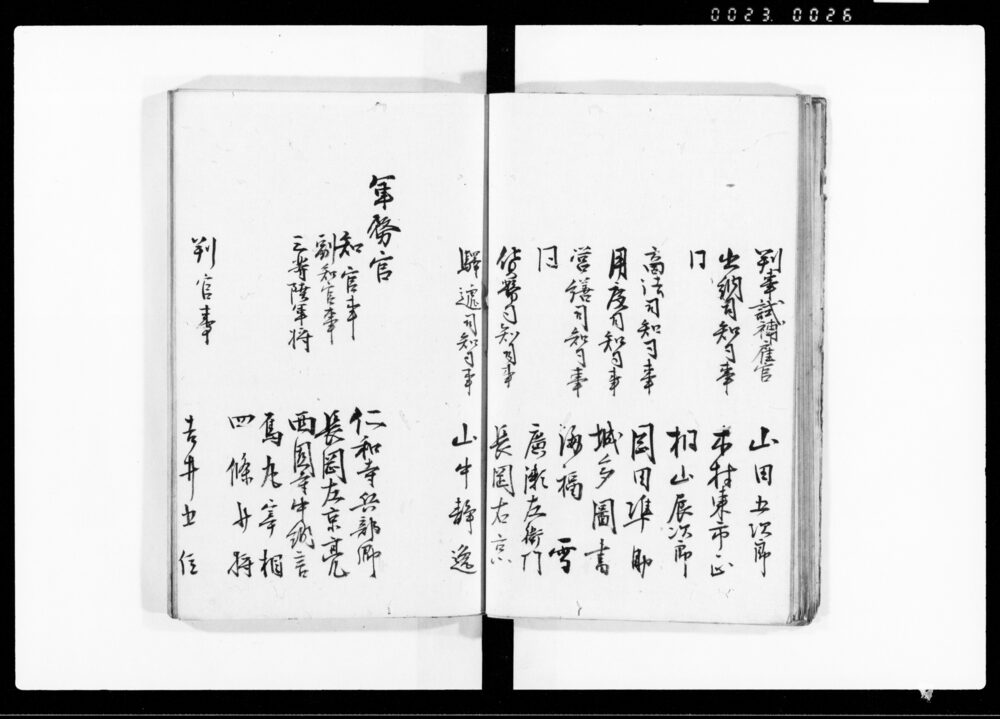 0023. 0026
判事試補雇官 山田五次郎
出納司知司事 木村東市正
同 桐山辰次郎
商法司知司事 岡田準助
用度司知司事 城多圖書
営繕司知司事 海福雪
同 廣瀬左衛門
貨幣司知司事 長岡右京
驛逓司知司事 山中静逸
軍務官
知官事 仁和寺兵部卿
副知官事 長岡左京亮
三等陸軍将 西園寺中納言
烏丸宰相
四條少将
判官事 吉井